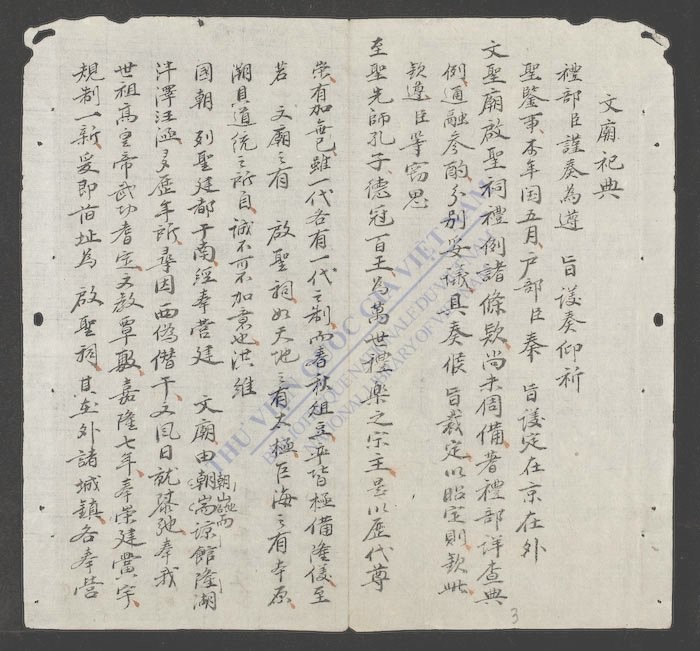 文廟祀典
禮部臣謹奏為遵 旨議奏仰祈
聖鑒事本年閏五月户部臣奏 旨議定在京在外
文聖廟啟聖祠禮例諸條欵尚未周備著禮部詳查典
例通融參酌分别妥議具奏候 旨裁定以昭定則欽此
欽遵臣等竊思
至聖先師孔子德冠百王為萬世禮樂之宗主是以歷代尊
崇有加無已雖一代各有一代之制而春秋俎豆率皆極備隆儀至
若 文廟之有 啟聖祠如天地之有太極巨海之有本原
溯其道統之所自誠不可不加意也洪維
國朝 列聖建都于南經奉營建 文廟由朝山池而湍凉館隆湖
泮澤汪涵多歷年所尋因西偽僭干文風日就隳弛奉我
世祖高皇帝武功耆定文教覃敷嘉隆七年奉崇建黌宇
規制一新爰即舊址為 啟聖祠其在外諸城鎮各奉營
3
THƯ VIỆN QUỐC GIA VIỆT NAM
BIBLIOTHÈQUE NATIONALE DU VIETNAM
NATIONAL LIBRARY OF VIETNAM